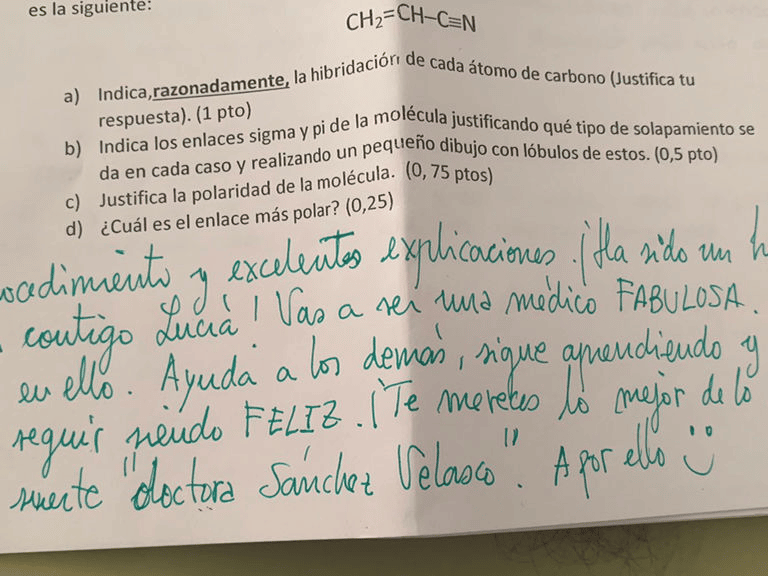 es la siguiente:
CH₂=CH–C≡N
a) Indica, razonadamente, la hibridación de cada átomo de carbono (Justifica tu
respuesta). (1 pto)
b) Indica los enlaces sigma y pi de la molécula justificando qué tipo de solapamiento se
da en cada caso y realizando un pequeño dibujo con lóbulos de estos. (0,5 pto)
c) Justifica la polaridad de la molécula. (0, 75 ptos)
d) ¿Cuál es el enlace más polar? (0,25)
ocedimiento y excelentes explicaciones. ¡Ha sido un h
contigo Lucía! Vas a ser una médico FABULOSA.
en ello. Ayuda a los demás, sigue aprendiendo y
seguir siendo FELIZ. ¡Te mereces lo mejor de lo
suerte "doctora Sánchez Velasco". A por ello